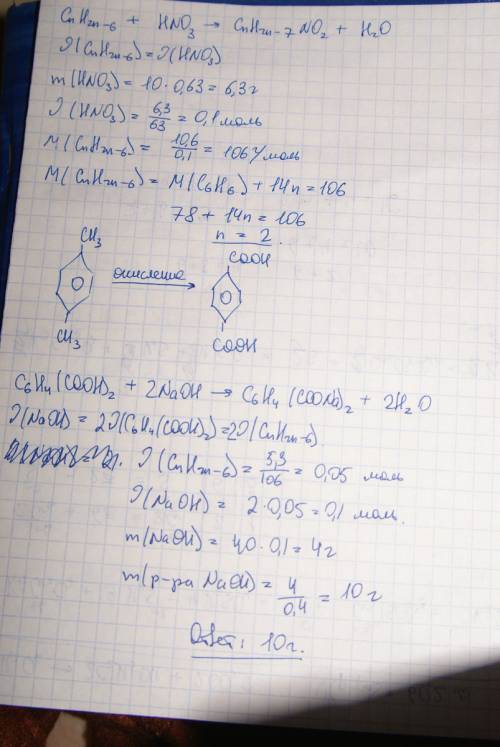 CnH2n-6 + HNO3 → CnH2n-7NO2 + H2O
ν(CnH2n-6) = ν(HNO3)
m(HNO3) = 10 · 0,63 = 6,3 г
ν(HNO3) = 6,3/63 = 0,1 моль
M(CnH2n-6) = 10,6/0,1 = 106 г/моль
M(CnH2n-6) = M(C6H6) + 14n = 106
78 + 14n = 106
n = 2.
CH3 окисление COOH
CH3 COOH
C6H4(COOH)2 + 2NaOH → C6H4(COONa)2 + 2H2O
ν(NaOH) = 2ν(C6H4(COOH)2) = 2ν(CnH2n-6).
ν(CnH2n-6) = 5,3/106 = 0,05 моль
ν(NaOH) = 2·0,05 = 0,1 моль.
m(NaOH) = 40 · 0,1 = 4 г
m(р-ра NaOH) = 4/0,4 = 10 г
Ответ: 10 г.